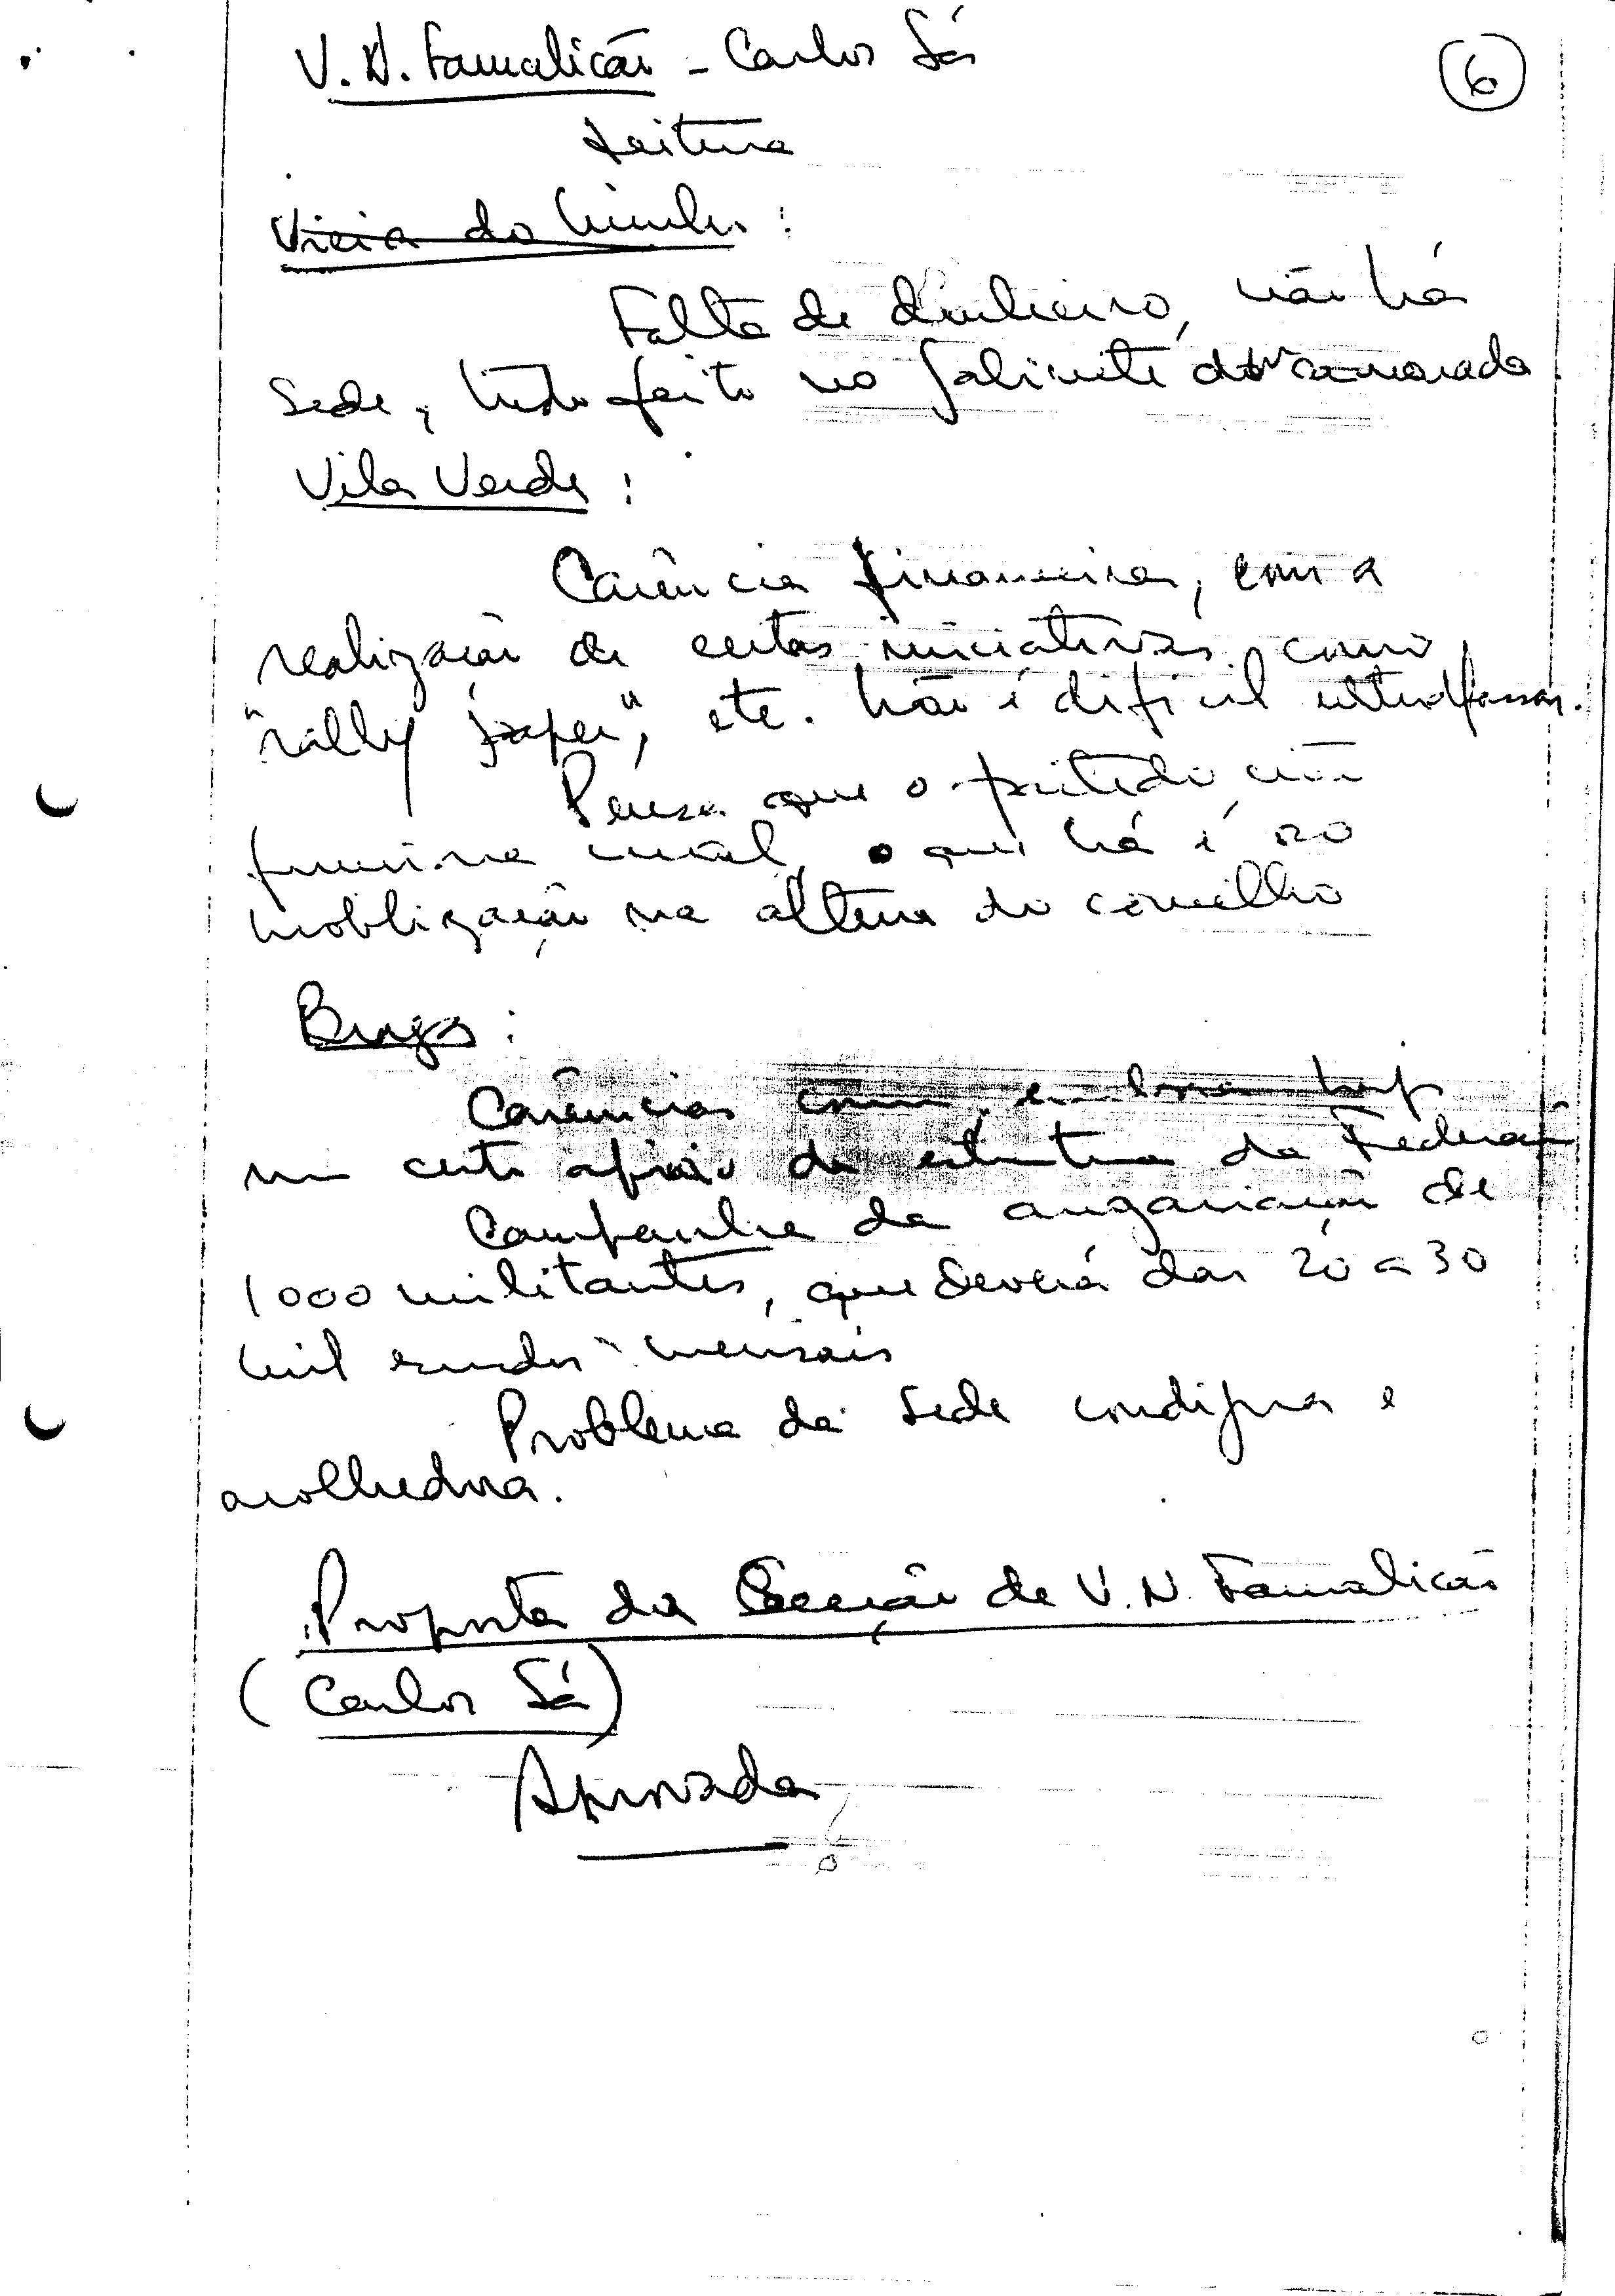 V. N. Famalicão - Carlos Sá
6
Leitura
Vieira do Minho :
Falta de dinheiro, não há
sede, tudo feito no gabinete do camarada
Vila Verde :
Carência financeira, com a
realização de certas iniciativas como
"rally paper", etc. não é difícil ultrapassar.
Pensa que o partido
funciona mal, o que há é
mobilização na altura do concelho
Braga :
Carências como, embora haja
um certo apoio da estrutura da Federação
Campanha da angariação de
1000 militantes, que deverá dar 20 a 30
mil escudos mensais
Problema da sede condigna e
acolhedora.
Proposta da Secção de V. N. Famalicão
(Carlos Sá)
Aprovada